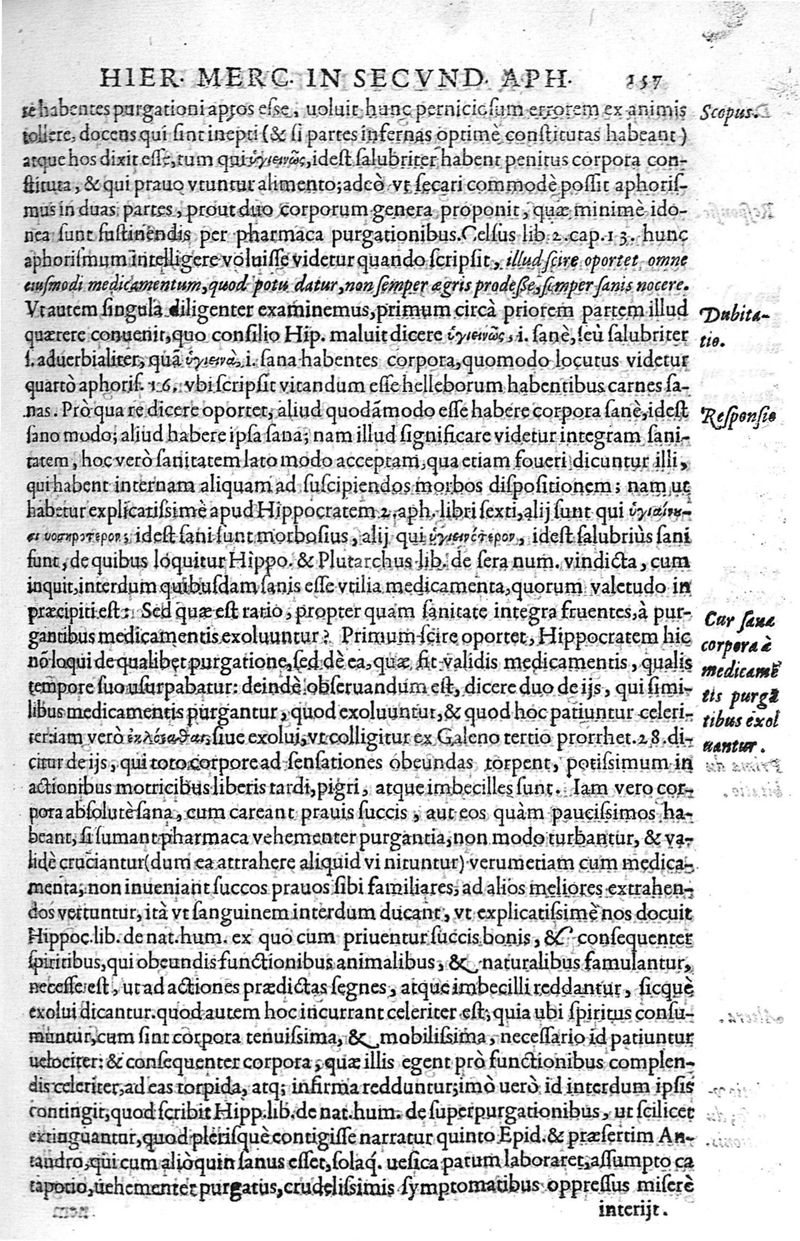 HIER. MERC. IN SECVND. APH. 157
re habentes purgationi aptos esse, uoluit hunc perniciosum errorem ex animis
Scopus.
tollere, docens qui sint inepti (& si partes infernas optimè constitutas habeant)
atque hos dixit esse, tum qui ὑγιεινῶς, idest salubriter habent penitus corpora con-
stituta, & qui prauo vtuntur alimento; adeò vt secari commodè possit aphoris-
mus in duas partes, prout duo corporum genera proponit, quæ minimè ido-
nea sunt sustinendis per pharmaca purgationibus. Celsus lib. 2. cap. 13. hunc
aphorismum intelligere voluisse videtur quando scripsit, illud scire oportet omne
eiusmodi medicamentum, quod potu datur, non semper ægris prodesse, semper sanis nocere.
Vt autem singula diligenter examinemus, primum circà priorem partem illud
Dubita-
quærere conuenit, quo consilio Hip. maluit dicere ὑγιεινῶς, i. sanè, seù salubriter
tio.
s. aduerbialiter, quā ὑγιεινὰ, i. sana habentes corpora, quomodo locutus videtur
quartò aphoris. 16. vbi scripsit vitandum esse helleborum habentibus carnes sa-
nas. Prò qua re dicere oportet, aliud quodāmodo esse habere corpora sanè, idest
Responsio
sano modo; aliud habere ipsa sana; nam illud significare videtur integram sani-
tatem, hoc verò sanitatem lato modo acceptam, qua etiam foueri dicuntur illi,
qui habent internam aliquam ad suscipiendos morbos dispositionem; nam ut
habetur explicatissimè apud Hippocratem 2. aph. libri sexti, alij sunt qui
idest sani sunt morbosius, alij qui ὑγιεινότερον, idest salubriùs sani
sunt, de quibus loquitur Hippo. & Plutarchus lib. de sera num. vindicta, cum
inquit, interdum quibusdam sanis esse vtilia medicamenta, quorum valetudo in
præcipiti est: Sed quæ est ratio, propter quam sanitate integra fruentes, à pur-
Cur sana
gantibus medicamentis exoluuntur? Primum scire oportet, Hippocratem hic
corpora à
nō loqui de qualibet purgatione, sed dè ea, quæ fit validis medicamentis, qualis
medicamē
tempore suo usurpabatur: deindè obseruandum est, dicere duo de ijs, qui simi-
tis purgā
libus medicamentis purgantur, quod exoluuntur, & quod hoc patiuntur celeri-
tibus exol
ter: iam verò ἐκλύεσθαι, siue exolui, vt colligitur ex Galeno tertio prorrhet. 28. di-
uantur.
citur de ijs, qui toto corpore ad sensationes obeundas torpent, potissimum in
actionibus motricibus liberis tardi, pigri, atque imbecilles sunt. Iam vero cor-
pora absolutè sana, cum careant prauis succis, aut eos quàm paucissimos ha-
beant, si sumant pharmaca vehementer purgantia, non modo turbantur, & va-
lidè cruciantur (dum ea attrahere aliquid vi nituntur) verumetiam cum medica-
menta, non inueniant succos prauos sibi familiares, ad alios meliores extrahen-
dos vertuntur, ità vt sanguinem interdum ducant, vt explicatissimè nos docuit
Hippoc. lib. de nat. hum. ex quo cum priuentur succis bonis, & consequenter
spiritibus, qui obeundis functionibus animalibus, & naturalibus famulantur,
necesse est, ut ad actiones prædictas segnes, atque imbecilli reddantur, sicquè
exolui dicantur. quod autem hoc incurrant celeriter est, quia ubi spiritus consu-
muntur, cum sint corpora tenuissima, & mobilissima, necessario id patiuntur
uelociter: & consequenter corpora, quæ illis egent prò functionibus complen-
dis celeriter, ad eas torpida, atq; infirma redduntur; imò uerò id interdum ipsis
contingit, quod scribit Hipp. lib. de nat. hum. de superpurgationibus, ut scilicet
extinguantur, quod plerisquè contigisse narratur quinto Epid. & præsertim An-
tandro, qui cum aliòquin sanus esset, solaq. uesica patum laboraret, assumpto ca
tapotio, uehementer purgatus, crudelissimis symptomatibus oppressus miserè
interijt.